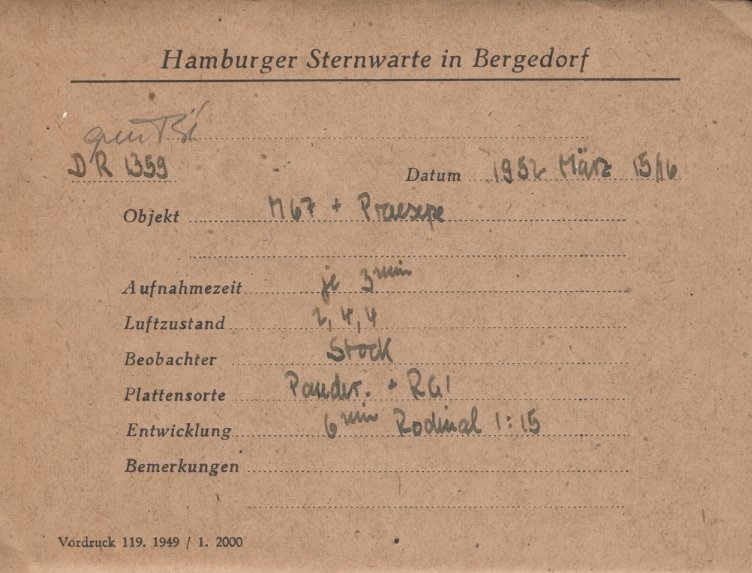 Hamburger Sternwarte in Bergedorf
DR 1359
Datum 1952 März 15/16
Objekt M67 + Praesepe
Aufnahmezeit je 3 min
Luftzustand 2, 4, 4
Beobachter Stock
Plattensorte Pander. + RG1
Entwicklung 6 min Rodinal 1:15
Bemerkungen
Vordruck 119. 1949 / 1. 2000